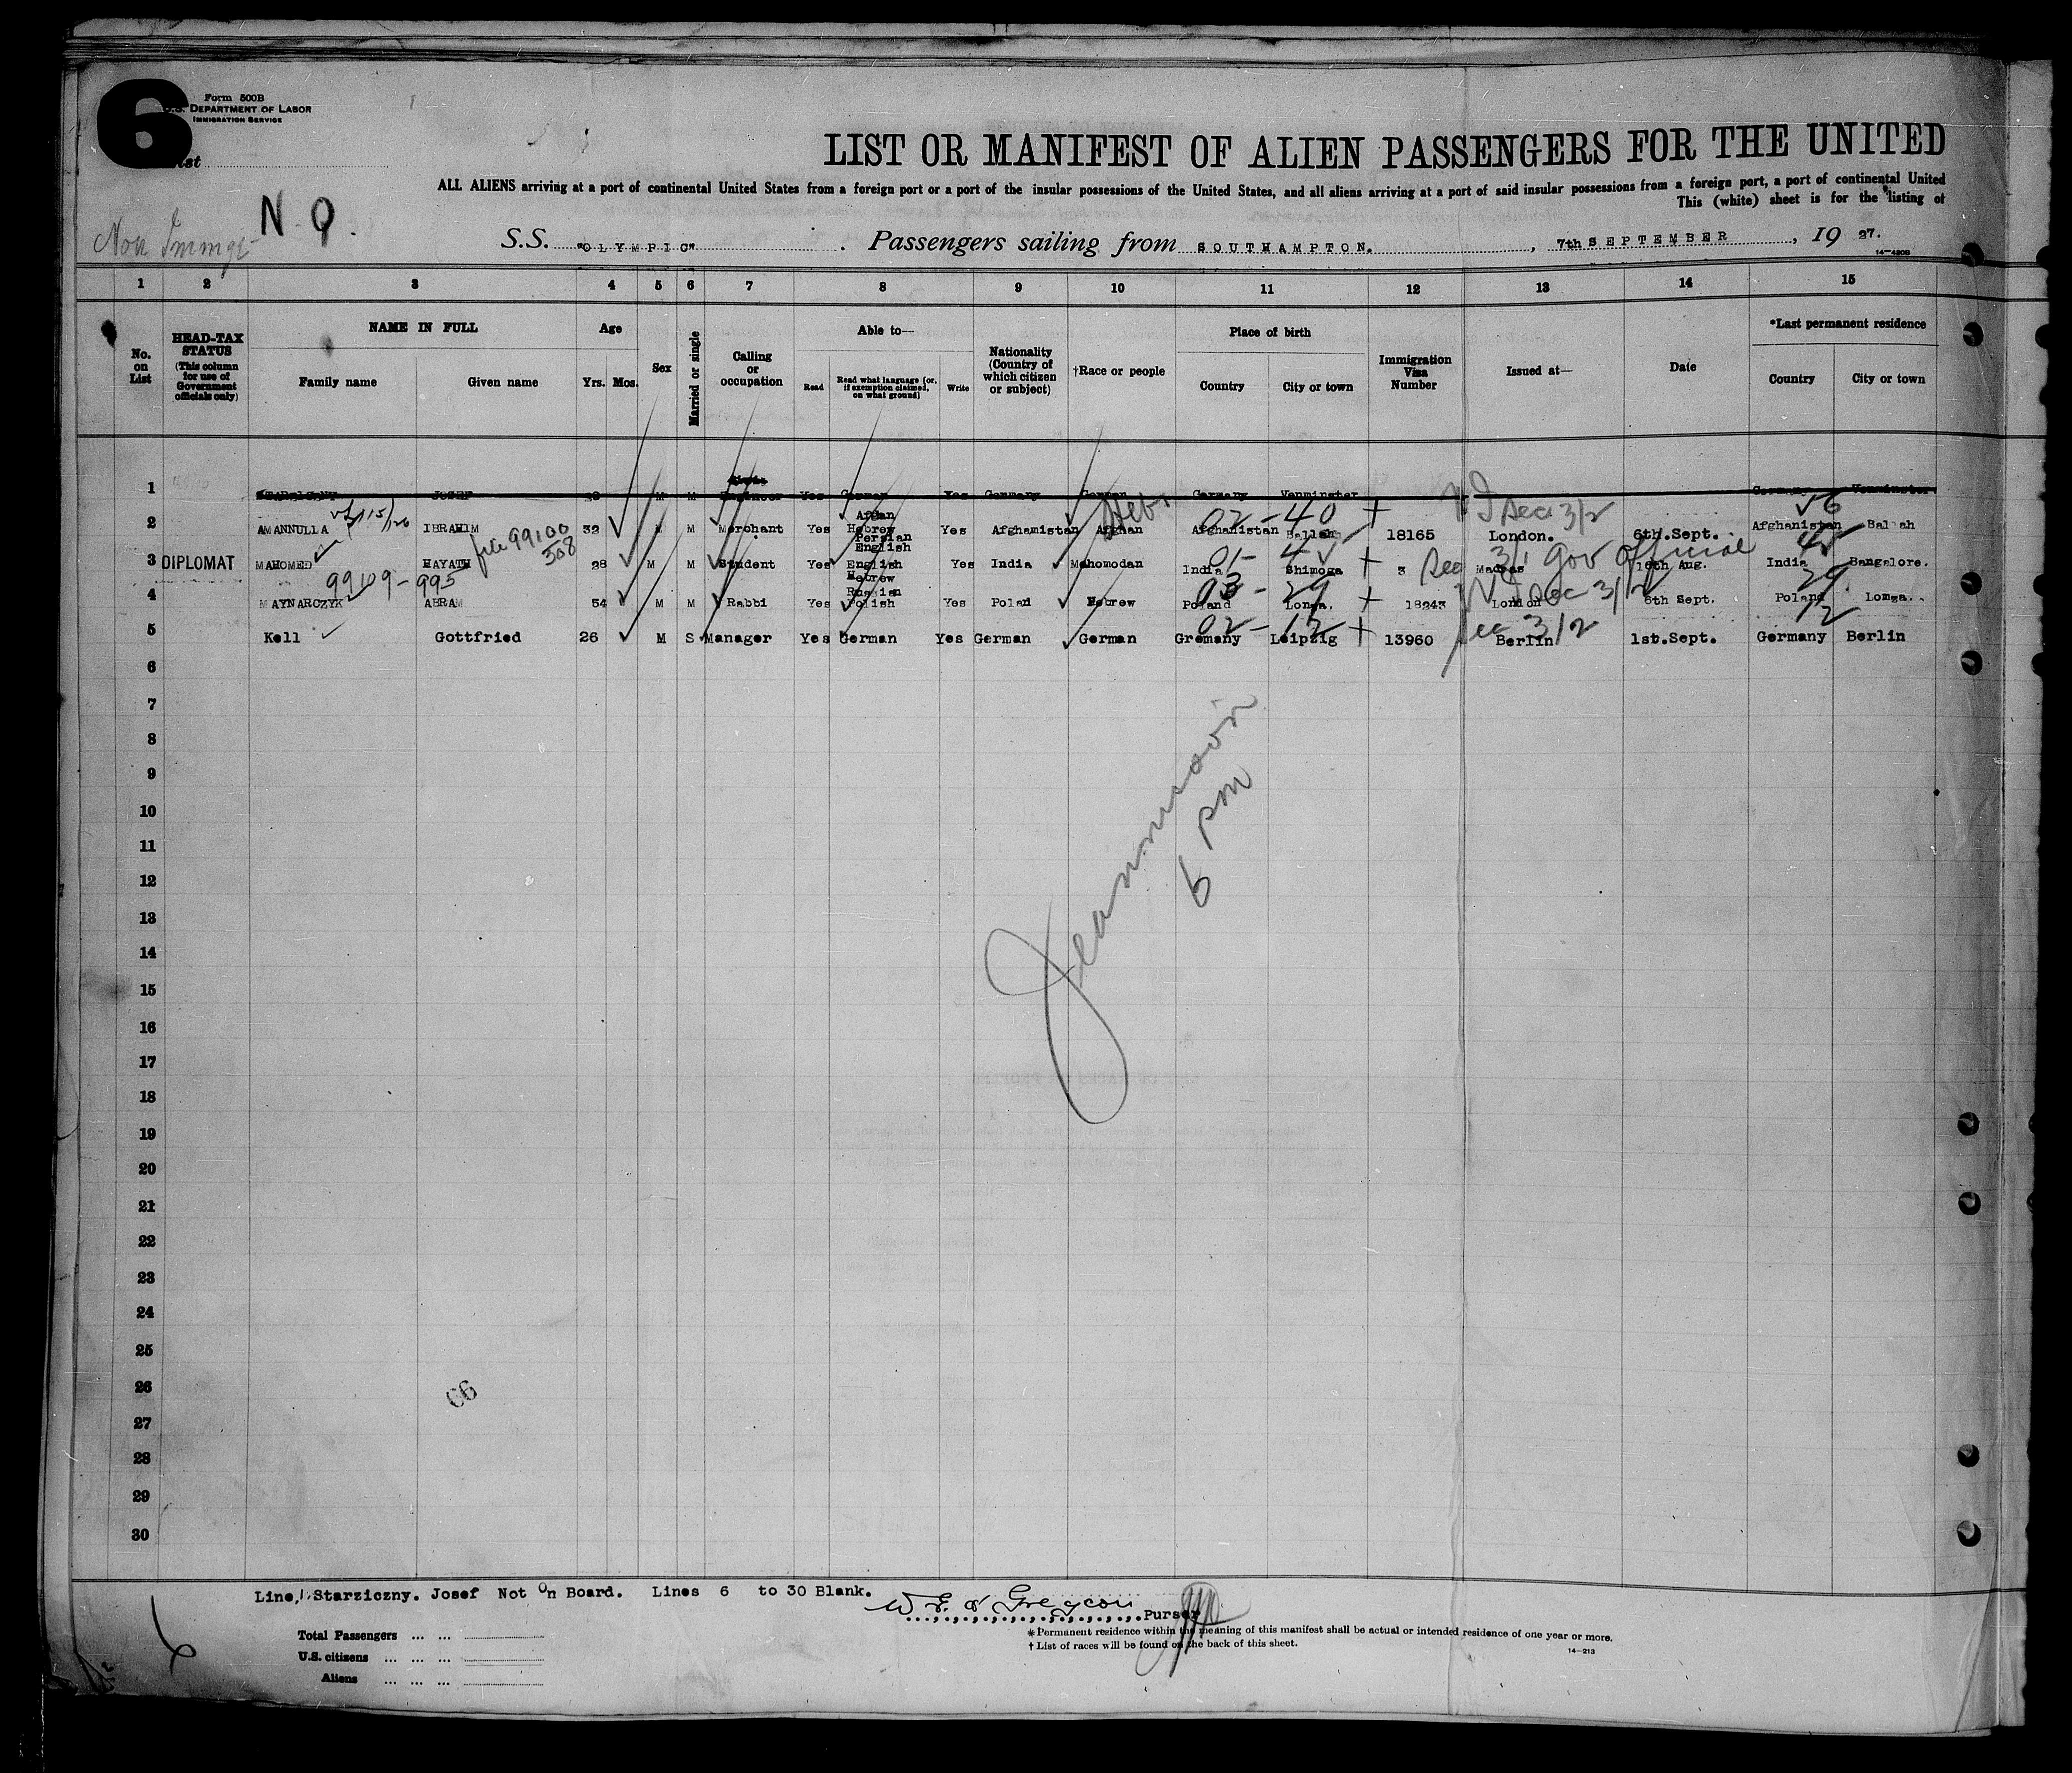 6
Form 500B
U.S. DEPARTMENT OF LABOR
IMMIGRATION SERVICE
List
LIST OR MANIFEST OF ALIEN PASSENGERS FOR THE UNITED
ALL ALIENS arriving at a port of continental United States from a foreign port or a port of the insular possessions of the United States, and all aliens arriving at a port of said insular possessions from a foreign port, a port of continental United
This (white) sheet is for the listing of
N. Q.
Non Immgt
S.S. "OLYMPIC" . Passengers sailing from SOUTHAMPTON. , 7th SEPTEMBER , 19 27.
14-420B
1 2 3 4 5 6 7 8 9 10 11 12 13 14 15
No. on List
HEAD-TAX STATUS (This column for use of Government officials only)
NAME IN FULL
Family name Given name
Age
Yrs. Mos.
Sex
Married or single
Calling or occupation
Able to—
Read Read what language [or, if exemption claimed, on what ground] Write
Nationality (Country of which citizen or subject)
†Race or people
Place of birth
Country City or town
Immigration Visa Number
Issued at—
Date
*Last permanent residence
Country City or town
1 JOSEF M M Engineer Yes German Yes Germany German Germany Venminster Germany Venminster
2 AMANNULLA IBRAHIM 32 M M Merchant Yes Afgan Hebrew Persian English Yes Afghamistan Afghan Afghanistan Ballah 18165 London. 6th.Sept. Afghanistan Ballah
Hebr
02-40 + Sec 3/2 56
3 DIPLOMAT MAHOMED HAYATH 28 M M Student Yes English Yes India Mahomodan India Shimoga 3 Madras 16th Aug. India Bangalore.
file 99100/508
01- + Sec 3/1 Gov Official
4 MAYNARCZYK ABRAM 54 M M Rabbi Yes Hebrew Russian Polish Yes Poland Hebrew Poland Lomza. 18243 London 6th Sept. Poland Lomza.
99109-995
03-29 + Sec 3/2 29
5 Kell Gottfried 26 M S Manager Yes German Yes German German Gremany Leipzig 13960 Berlin 1st.Sept. Germany Berlin
02-12 + Sec 3/2 12
6
7
8
9
10
11
12
13
14
15
16
17
18
19
20
21
22
23
24
25
26
27
28
29
30
6 pm
66
Line, 1. Starziczny. Josef Not On Board. Lines 6 to 30 Blank.
Purser
*Permanent residence within the meaning of this manifest shall be actual or intended residence of one year or more.
†List of races will be found on the back of this sheet.
14-213
Total Passengers ... ...
U.S. citizens ... ... ...
Aliens ... ... ...